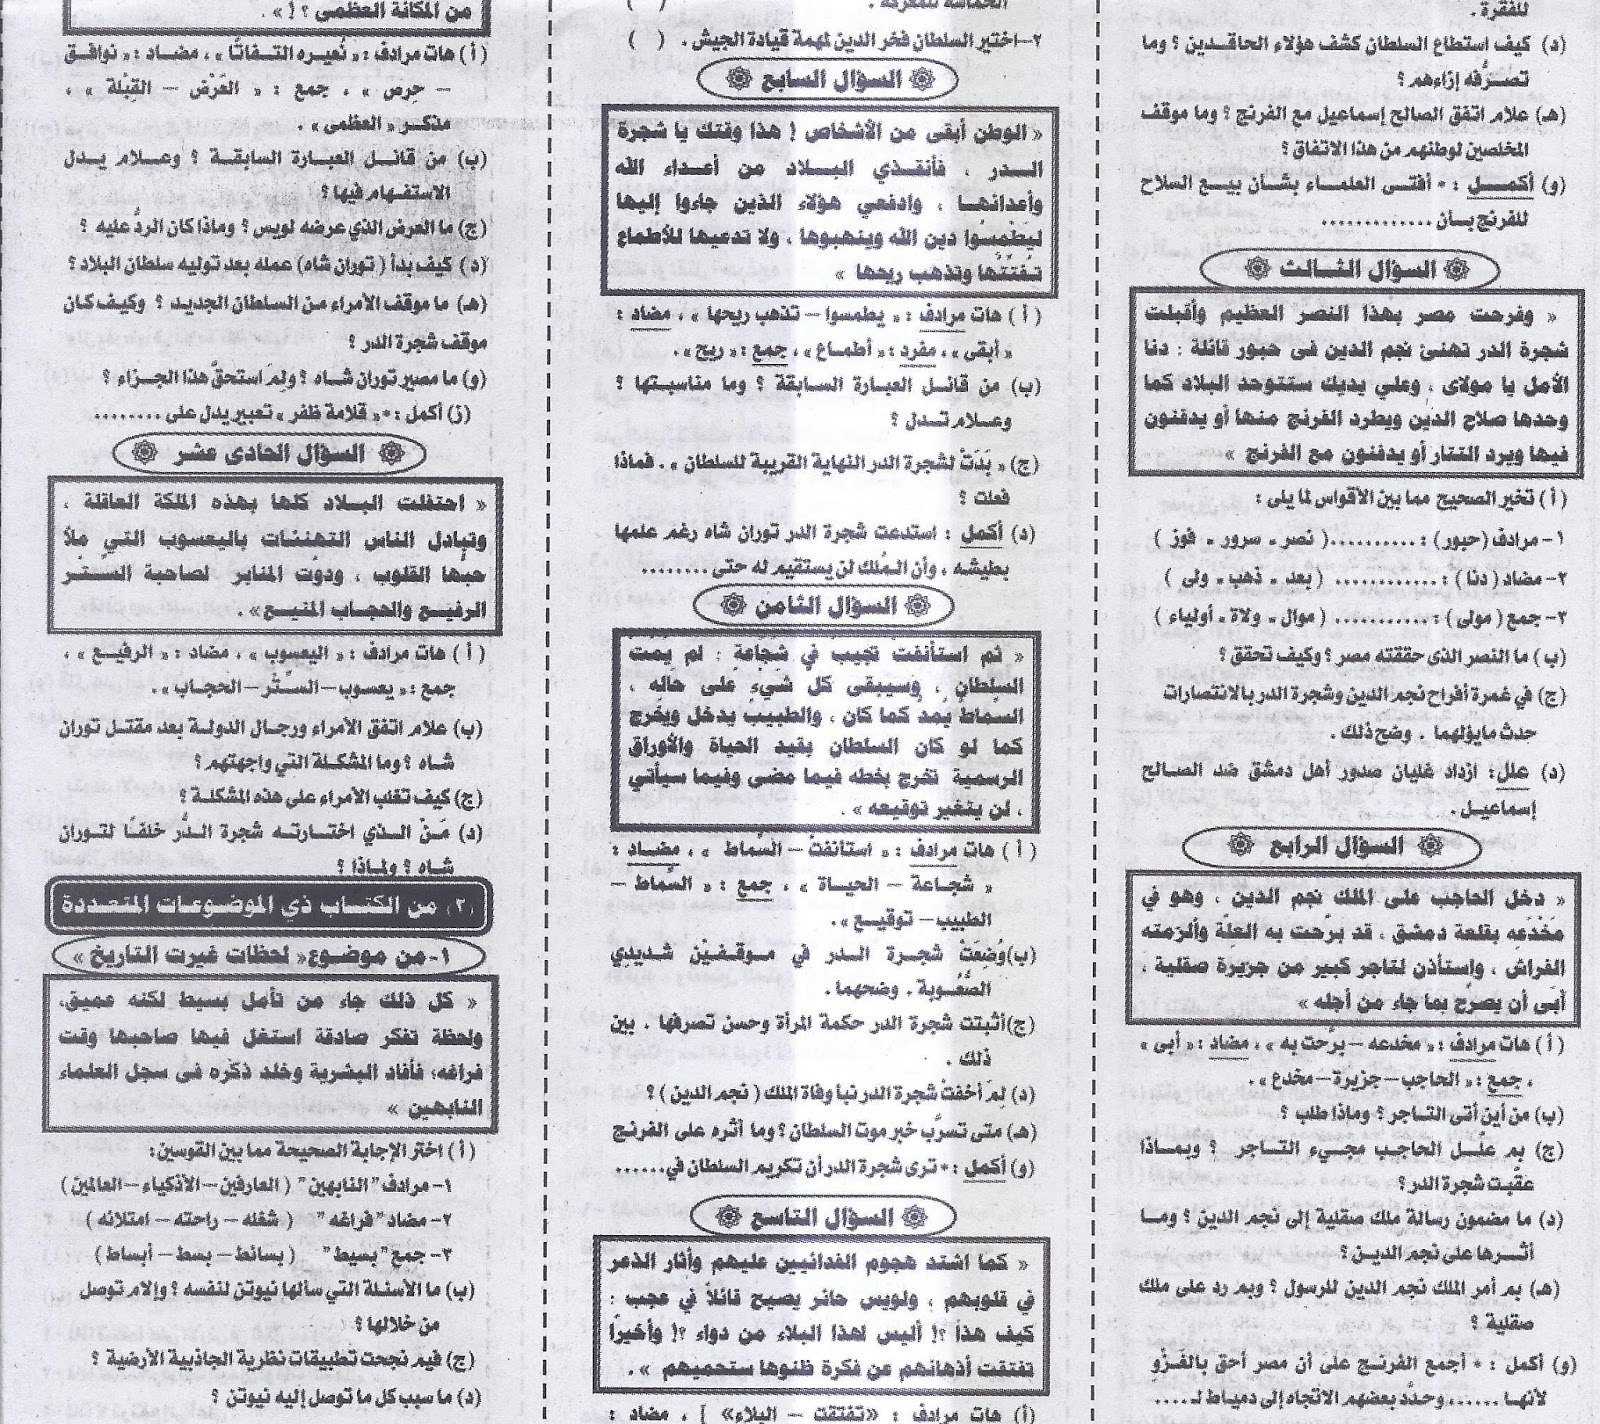 للفقرة .
(د) كيف استطاع السلطان كشف هؤلاء الحاقدين ؟ وما
تصرُّفه إزاءهم؟
(هـ) علام اتفق الصالح إسماعيل مع الفرنج ؟ وما موقف
المخلصين لوطنهم من هذا الاتفاق ؟
(و) أكمـــل : * أفتى العلمـاء بشأن بيـع السلاح
للفرنج بـأن .............
السؤال الثـالث
« وفرحت مصر بهذا النصر العظيم وأقبلت
شجرة الدر تهنئ نجم الدين فى حبور قائلة : دنا
الأمل يا مولاى ، وعلى يديك ستتوحد البلاد كما
وحدها صلاح الدين ويطرد الفرنج منها أو يدفنون
فيها ويرد التتار أو يدفنون مع الفرنج »
(أ) تخير الصحيح مما بين الأقواس لما يلى :
١- مرادف (حبور) : .......... ( نصر - سرور - فوز )
٢- مضاد (دنا) : ............ ( بعد - ذهب - ولى )
٣- جمع (مولى) : ........... ( موال - ولاة - أولياء )
(ب) ما النصر الذى حققته مصر ؟ وكيف تحقق ؟
(ج) في غمرة أفراح نجم الدين وشجرة الدر بالانتصارات
حدث ما يؤلهما . وضح ذلك .
(د) علل: ازداد غليان صدور أهل دمشق ضد الصالح
إسماعيـل .
السؤال الرابع
« دخل الحاجب على الملك نجم الدين ، وهو في
مَخْدَعِه بقلعة دمشق ، قد برّحت به العِلّة وألزمته
الفراش ، واستأذن لتاجر كبير من جزيرة صقلية ،
أبى أن يصرّح بما جاء من أجله »
(أ) هات مرادف : « مخدعه – برَّحت به » ، مضاد : « أبى »
، جمع : « الحاجب – جزيرة – مخدع » .
(ب) من أين أتى التاجر ؟ وماذا طلب ؟
(ج) بم علَّـل الحاجب مجيء التاجر ؟ وبمـاذا
عقَّبت شجرة الدر ؟
(د) ما مضمون رسالة ملك صقلية إلى نجم الدين ؟ ومـا
أثـرها على نجم الديـن ؟
(هـ) بم أمر الملك نجم الدين للرسول ؟ وبم رد على ملك
صقلية ؟
(و) أكمل : * أجمع الفرنج على أن مصر أحق بالغَزْو
لأنهـا ...... وحدَّد بعضهم الاتجاه إلى دمياط لـ .....
الحماسة للمعركة . ( )
٢- اختير السلطان فخر الدين لمهمة قيادة الجيش . ( )
السؤال السابع
« الوطن أبقى من الأشخاص ! هذا وقتك يا شجرة
الـدر ، فأنقـذي البـلاد من أعـداء الله
وأعدائهـا ، وادفعي هؤلاء الذين جاءوا إليها
ليَطْمِسُوا دين الله وينهبوها ، ولا تدعيها للأطماع
تـُفتِّتُها وتذهب ريحها »
(أ) هات مرادف : « يطمسوا – تذهب ريحها » ، مضاد :
« أبقى » ، مفرد : « أطماع » ، جمع : « ريح » .
(ب) من قائـل العبارة السابقة ؟ وما مناسبتها ؟
وعـلام تـدل ؟
(ج) « بَدَتْ لشجرة الدر النهاية القريبة للسلطان » . فماذا
فعلت ؟
(د) أكمل : استدعت شجرة الدر توران شاه رغم علمها
بطيشه ، وأن المُلك لن يستقيم له حتى ........
السؤال الثامن
« ثم استأنفت تجيب في شجاعةٍ : لم يَمت
السلطان ، وسيبقى كل شيءٍ على حاله ،
السماط يُمد كما كان ، والطبيب يدخل ويخرج
كما لو كان السلطان بقيد الحياة والأوراق
الرسمية تخرج بخطه فيما مضى وفيما سيأتي
، لن يتغير توقيعه » .
(أ) هات مرادف : « استأنفتْ – السِّماط » ، مضاد :
« شجاعة – الحياة » ، جمع : « السِّماط –
الطبيب – توقيع » .
(ب) وُضِعَتْ شجـرة الدر في مـوقـفيْن شديديِ
الصُّعُـوبة . وضحهما .
(ج) أثبتت شجرة الدر حكمة المرأة وحسن تصرفها . بين
ذلك .
(د) لِمَ أخفتْ شجرة الدر نبأ وفاة الملك ( نجم الدين ) ؟
(هـ) متى تسرَّب خبر موت السلطان ؟ وما أثره على الفرنج
(و) أكمل : * ترى شجرة الدر أن تكريم السلطان في ......
السؤال التاسع
« كما اشتد هجوم الفدائيين عليهم وأثار الذعر
في قلوبهم ، ولويس حائر يصيح قائلاً في عجب :
كيف هذا ؟! أليس لهذا البلاء من دواء ؟! وأخيرًا
تفتقت أذهانهم عن فكرة ظنوها ستحميهم » .
(أ) هات مرادف : « تفتقت – البلاء » ] ، مضاد :
من المكانة العظمى ؟ ! » .
(أ) هات مرادف : « نُعيره التـفـاتًا » ، مضاد : « نوافق
– حِرص » ، جمع : « العَرْض – القِبْلة » ،
مذكـر « العظمى » .
(ب) من قائـل العبـارة السابقـة ؟ وعـلام يـدل
الاستفهـام فيهـا ؟
(ج) ما العرض الذي عرضه لويس ؟ وماذا كان الردُّ عليه ؟
(د) كيف بدأ ( توران شاه) عمله بعد توليه سلطان البلاد ؟
(هـ) ما موقف الأمراء من السلطان الجديد ؟ وكيف كان
موقف شجرة الدر ؟
(و) ما مصير توران شاه ؟ ولِمَ استحقَّ هذا الجزاء ؟
(ز) أكمل : * « قلامة ظفر » تعبير يدل على ........
السؤال الحادى عشر
« احتفلت البـلاد كلها بهذه الملكة العاقلة ،
وتبادل الناس التهنئات باليعسوب التي ملأ
حبها القلوب ، ودوّت المنابر لصاحبة الستر
الرفيـع والحجاب المنيـع » .
(أ) هات مرادف : « اليعسوب » ، مضاد : « الرفيـع » ،
جمع : « يعسوب – السِّتْر – الحجاب » .
(ب) علام اتفق الأمراء ورجال الدولة بعد مقتل توران
شـاه ؟ وما المشكـلة التي واجهتهم ؟
(ج) كيف تغلب الأمراء على هذه المشكلـة ؟
(د) مَـنْ الـذي اختـارتـه شجرة الدُّر خلفـًا لتـوران
شـاه ؟ ولماذا ؟
(٢) من الكتـاب ذي الموضـوعـات المتعـددة
١- من موضـوع « لحظات غيرت التاريخ »
« كل ذلك جاء من تأمل بسيط لكنه عميق،
ولحظة تفكر صادقة استغل فيها صاحبها وقت
فراغه؛ فأفاد البشرية وخلد ذكره فى سجل العلماء
النابهين »
(أ) اختر الإجابة الصحيحة مما بين القوسين:
١- مرادف "النابهين" ( العارفين – الأذكياء – العالمين )
٢- مضاد "فراغه" ( شغله – راحته – امتلائه )
٣- جمع "بسيط" ( بسائط – بسط – أبساط )
(ب) ما الأسئلة التي سألها نيوتن لنفسه ؟ وإلام توصل
من خلالها ؟
(ج) فيم نجحت تطبيقات نظرية الجاذبية الأرضية ؟
(د) ما سبب كل ما توصل إليه نيوتن ؟